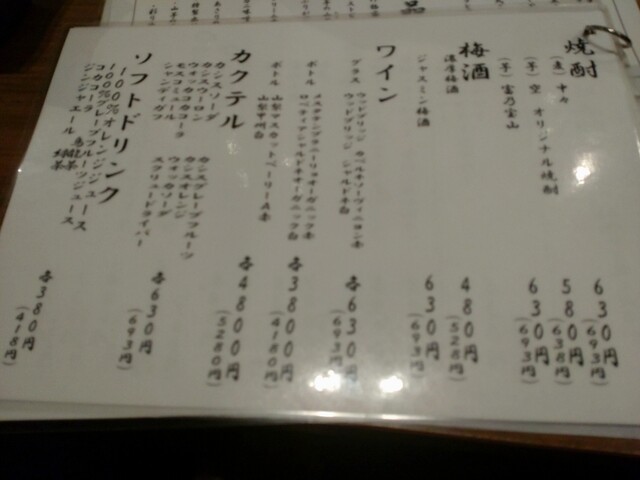 焼酎
(麦) 十々 630円 (693円)
(芋) 空 オリジナル焼酎 580円 (638円)
(芋) 富乃宝山 630円 (693円)
梅酒
濃厚梅酒 480円 (528円)
ジャスミン梅酒 630円 (693円)
ワイン
グラス ウッドブリッジ カベルネソーヴィニヨン赤
ウッドブリッジ シャルドネ白 各630円 (693円)
ボトル
オーガニック赤
シャルドネオーガニック白 各3800円 (4180円)
ボトル 山梨マスカットベーリーA赤
山梨甲州白 各4800円 (5280円)
カクテル
カシスソーダ カシスグレープフルーツ
カシスウーロン カシスオレンジ
ウォッカコーラ ウォッカソーダ
モスコミュール スクリュードライバー
シャンディガフ 各630円 (693円)
ソフトドリンク
100%オレンジジュース
100%グレープフルーツジュース
コカコーラ 烏龍茶
ジンジャエール 緑茶 各380円 (418円)